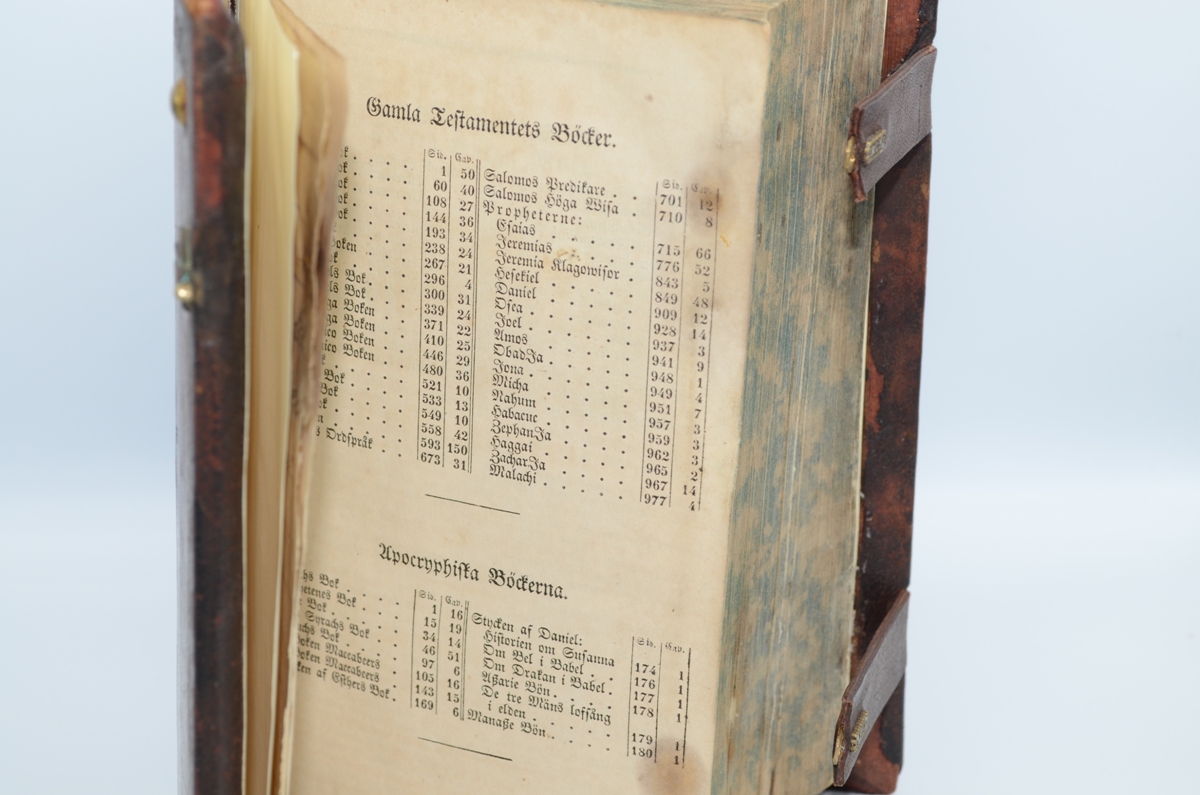 Gamla Testamentets Böcker.
Sid. Cap.
1 50
ok 60 40
ok 108 27
ok 144 36
ok 193 34
238 24
oken 267 21
296 4
ls Bok 300 31
ls Bok 339 24
ga Boken 371 22
ga Boken 410 25
ico Boken 446 29
ico Boken 480 36
521 10
Bok 533 13
Bok 549 10
ok 558 42
n 593 150
s Ordspråk 673 31
Sid. Cap.
Salomos Predikare 701 12
Salomos Höga Wisa 710 8
Propheterne:
Esaias 715 66
Jeremias 776 52
Jeremia Klagowisor 843 5
Hesekiel 849 48
Daniel 909 12
Osea 928 14
Joel 937 3
Amos 941 9
ObadJa 948 1
Jona 949 4
Micha 951 7
Nahum 957 3
Habacuc 959 3
ZephanJa 962 3
Haggai 965 2
ZacharJa 967 14
Malachi 977 4
Apocryphiska Böckerna.
Sid. Cap.
hs Bok 1 16
hetenes Bok 15 19
Bok 34 14
Syrachs Bok 46 51
chs Bok 97 6
oken Maccabeers 105 16
oken Maccabeers 143 15
ken af Esthers Bok 169 6
Sid. Cap.
Stycken af Daniel:
Historien om Susanna 174 1
Om Bel i Babel 176 1
Om Drakan i Babel 177 1
Aßarie Bön 178 1
De tre Mäns loffång
i elden 179 1
Manaße Bön 180 1